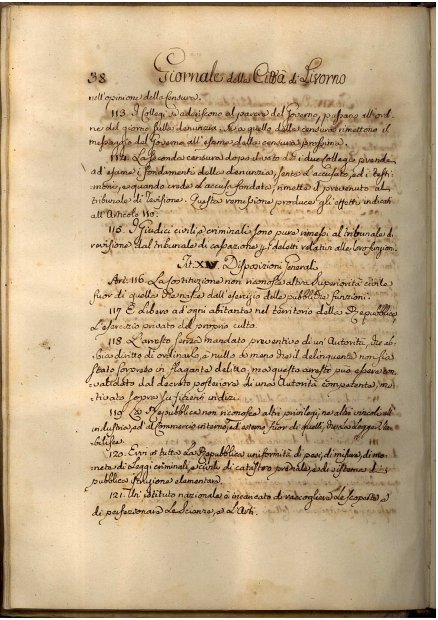 38 Giornale della Città di Livorno
nell'opinione della Censura.
113. I Collegj se aderiscono al parere del Governo, passano all'ord-
ine del giorno sulla denunzia. Se a quello della censura rimettono il
messaggio del Governo all'esame della censura prossima.
114. La seconda censura dopo l'avviso de i due Collegj prende
ad esame i fondamenti della denunzia, sente l'accusato, ed i testi-
monj, e quando crede l'accusa fondata, rimette il prevenuto al
tribunale di revisione. Questa remissione produce gli effetti indicati
all'Articolo 110.
115. I Giudici civili, e criminali sono pure rimessi al tribunale di
revisione dal tribunale di cassazione p. i delitti relativi alle loro funzioni.
Tit. XIV. Disposizioni Generali
Art. 116. La Costituzione non riconosce altra Superiorità civile
fuor di quella che nasce dall'esercizio delle pubbliche funzioni.
117. È Libero ad ogni abitante nel territorio della Repubblica
L'esercizio privato del proprio culto.
118. L'arresto senza mandato preventivo di un'Autorità, che ab-
bia diritto di ordinarlo, è nullo a meno che il delinquente non sia
stato sorpreso in flagrante delitto, ma questo arresto può essere con-
validato dal decreto posteriore di una Autorità competente, mo-
tivato sopra sufficienti indizi.
119. La Repubblica non riconosce altri privilegj, nè altri vincoli all'
industria, ed al Commercio interno, ed esterno fuor di quelli, che la legge sta-
bilisce.
120. Evvi p. tutta la Repubblica uniformità di pesi, di misure, di mo-
nete di Leggi criminali, e civili, di catastro prediale, e di sistema di
pubblica istruzione elementare.
121. Un'istituto nazionale è incaricato di raccogliere le scoperte, e
di perfezionare Le Scienze, e L'Arti.